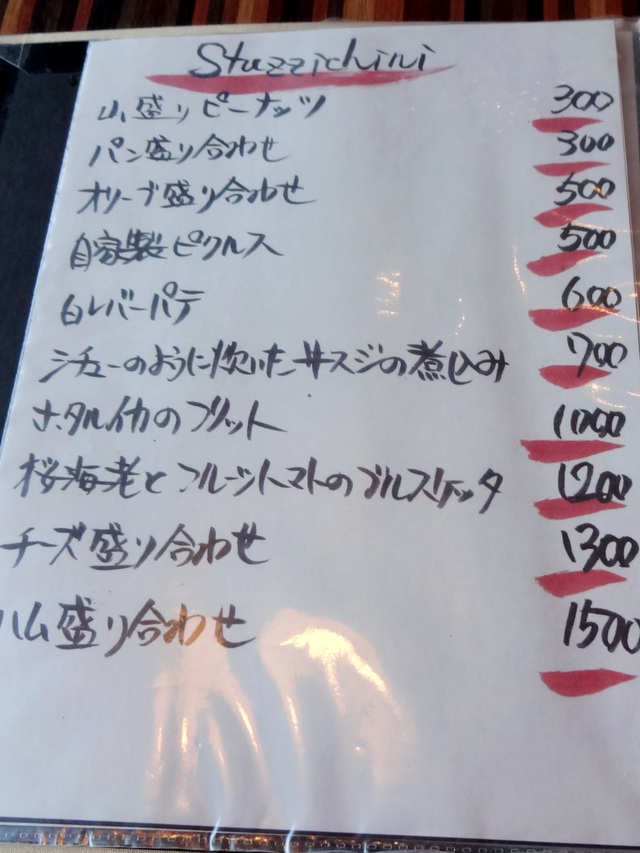 Stuzzichini
山盛りピーナッツ 300
パン盛り合わせ 300
オリーブ盛り合わせ 500
自家製ピクルス 500
白レバーパテ 600
シチューのように炊いた牛スジの煮込み 700
ホタルイカのフリット 1000
桜海老とフルーツトマトのブルスケッタ 1200
チーズ盛り合わせ 1300
ハム盛り合わせ 1500